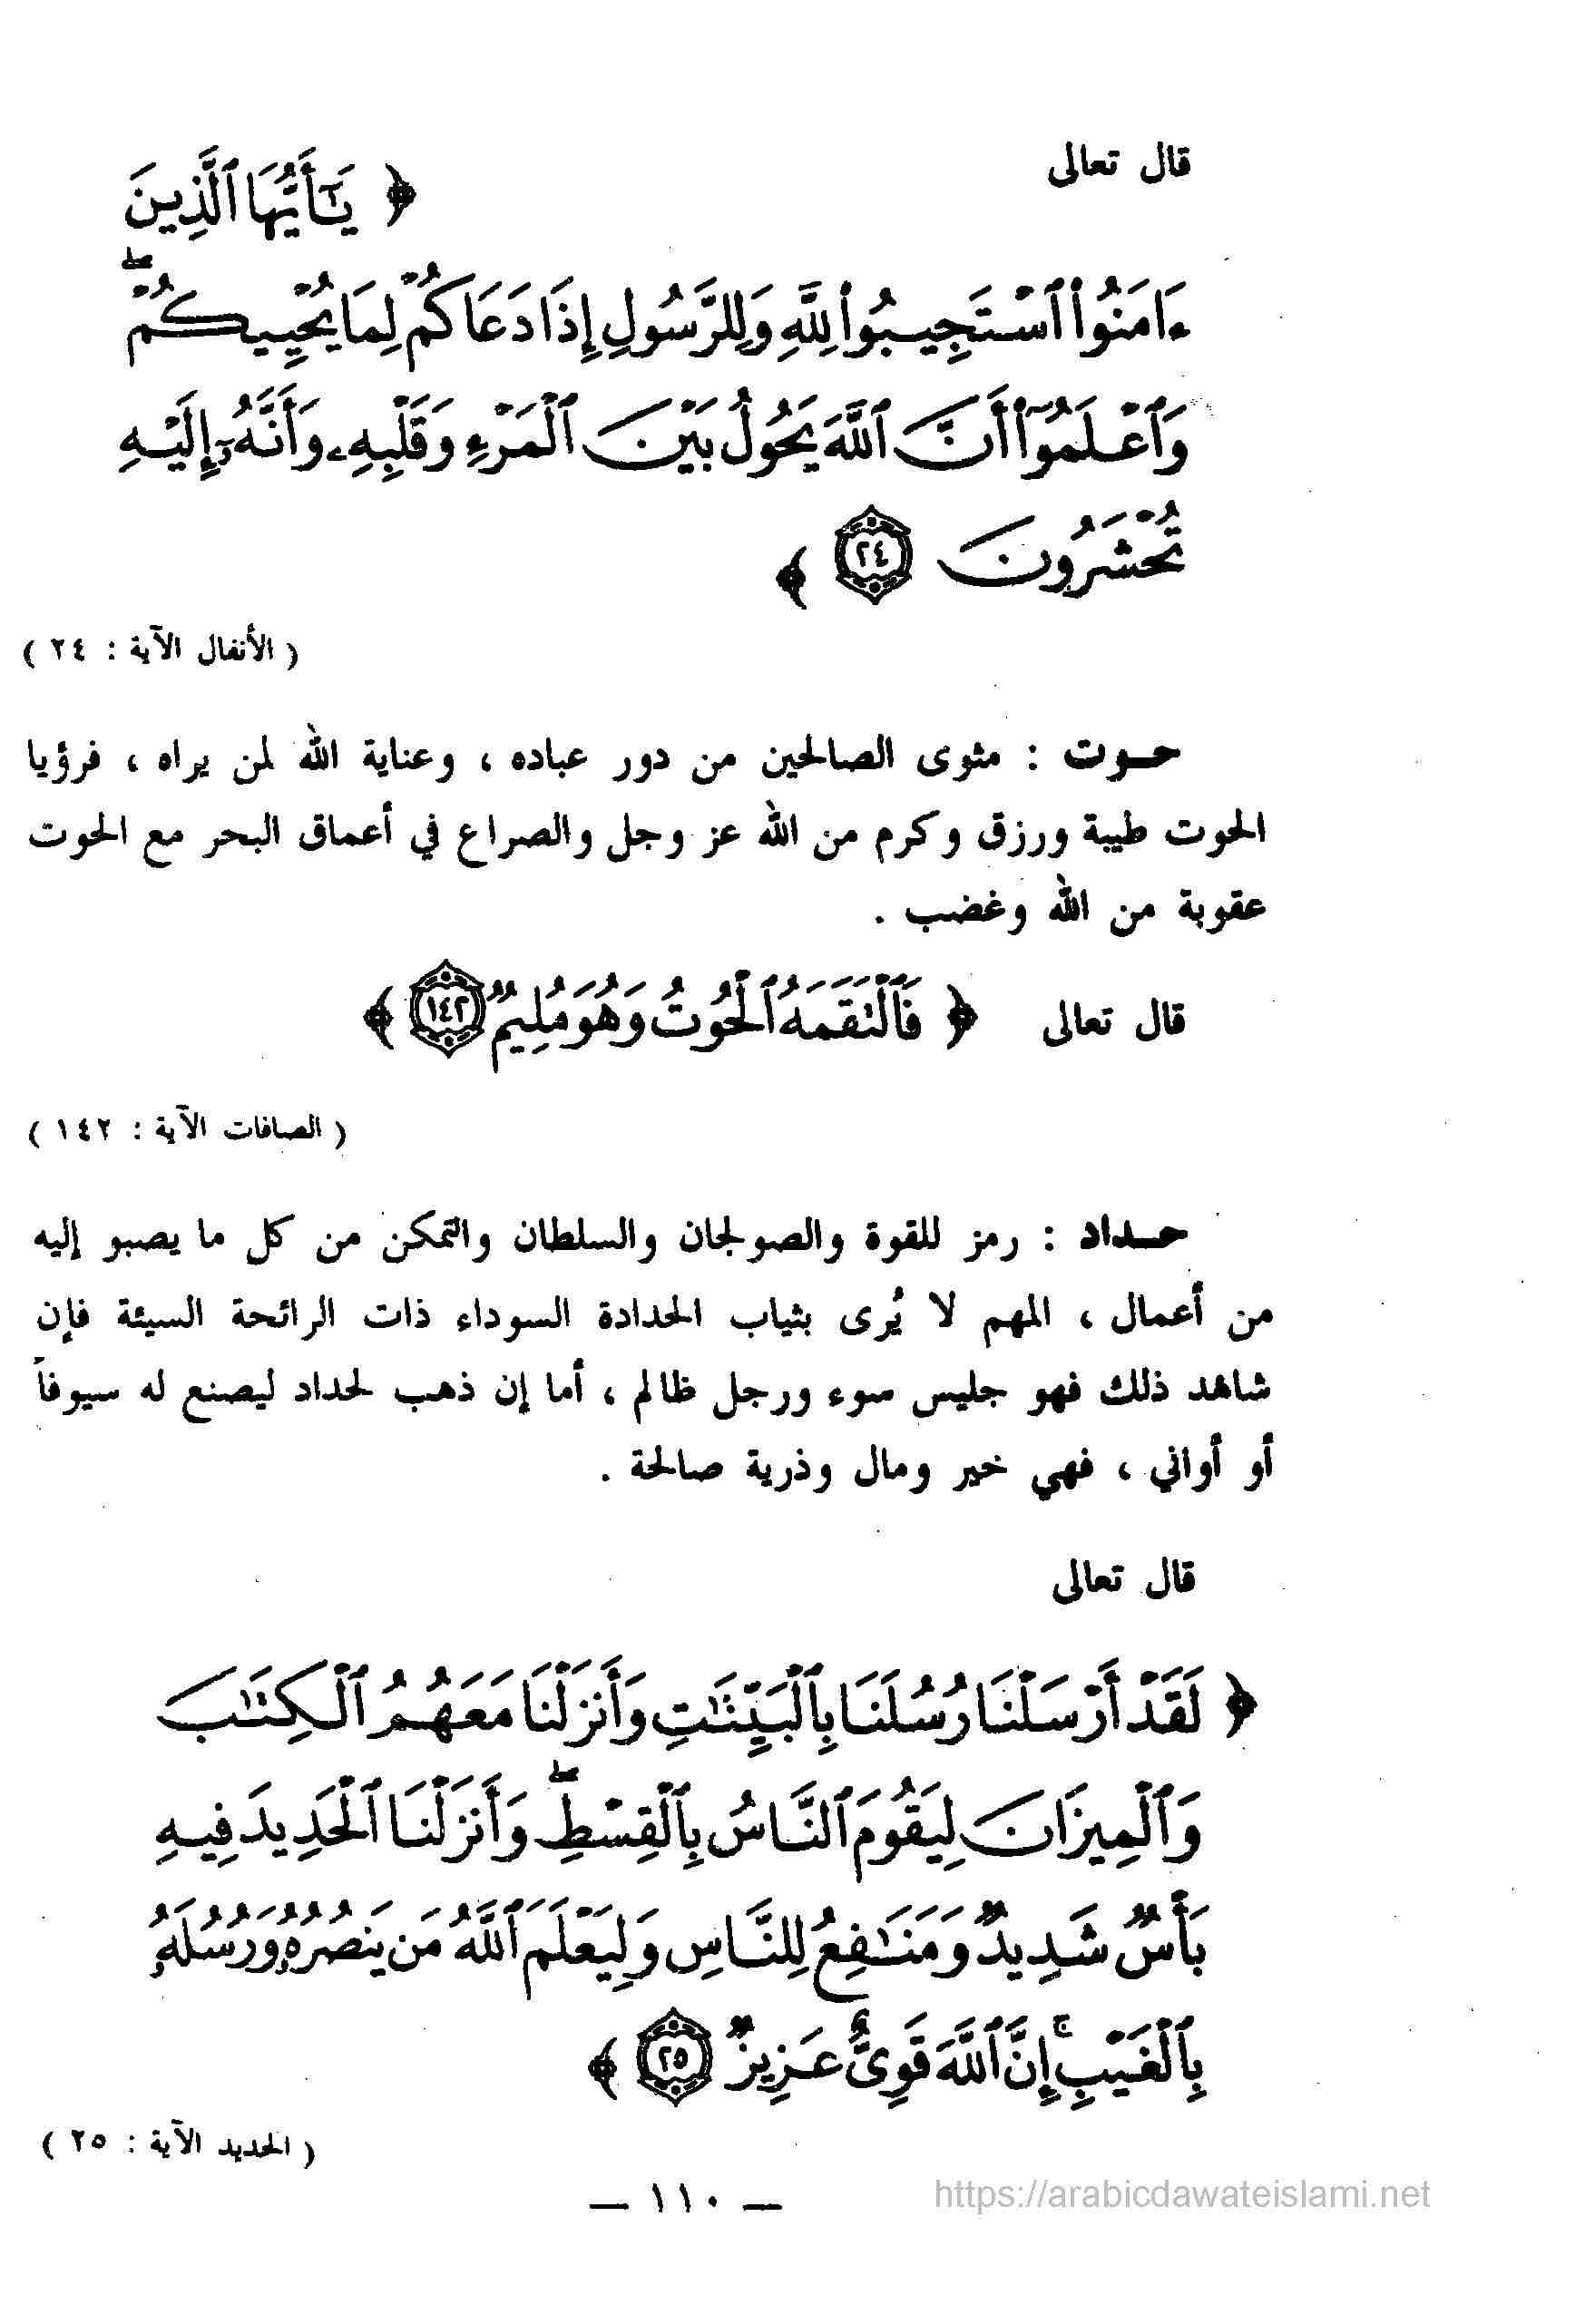 قال تعالى
﴿ يَٰٓأَيُّهَا ٱلَّذِينَ
ءَامَنُوا۟ ٱسْتَجِيبُوا۟ لِلَّهِ وَلِلرَّسُولِ إِذَا دَعَاكُمْ لِمَا يُحْيِيكُمْ ۖ
وَٱعْلَمُوٓا۟ أَنَّ ٱللَّهَ يَحُولُ بَيْنَ ٱلْمَرْءِ وَقَلْبِهِۦ وَأَنَّهُۥٓ إِلَيْهِ
تُحْشَرُونَ ٢٤ ﴾
( الأنفال الآية : ٢٤ )
حـوت : مثوى الصالحين من دور عباده ، وعناية الله لمن يراه ، فرؤيا
الحوت طيبة ورزق وكرم من الله عز وجل والصراع في أعماق البحر مع الحوت
عقوبة من الله وغضب .
قال تعالى ﴿ فَٱلْتَقَمَهُ ٱلْحُوتُ وَهُوَ مُلِيمٌ ١٤٢ ﴾
( الصافات الآية : ١٤٢ )
حـداد : رمز للقوة والصولجان والسلطان والتمكن من كل ما يصبو إليه
من أعمال ، المهم لا يُرى بثياب الحدادة السوداء ذات الرائحة السيئة فإن
شاهد ذلك فهو جليس سوء ورجل ظالم ، أما إن ذهب لحداد ليصنع له سيوفاً
أو أواني ، فهي خير ومال وذرية صالحة .
قال تعالى
﴿ لَقَدْ أَرْسَلْنَا رُسُلَنَا بِٱلْبَيِّنَٰتِ وَأَنزَلْنَا مَعَهُمُ ٱلْكِتَٰبَ
وَٱلْمِيزَانَ لِيَقُومَ ٱلنَّاسُ بِٱلْقِسْطِ ۖ وَأَنزَلْنَا ٱلْحَدِيدَ فِيهِ
بَأْسٌ شَدِيدٌ وَمَنَٰفِعُ لِلنَّاسِ وَلِيَعْلَمَ ٱللَّهُ مَن يَنصُرُهُۥ وَرُسُلَهُۥ
بِٱلْغَيْبِ ۚ إِنَّ ٱللَّهَ قَوِىٌّ عَزِيزٌ ٢٥ ﴾
( الحديد الآية : ٢٥ )
— ١١٠ —
https://arabicdawateislami.net